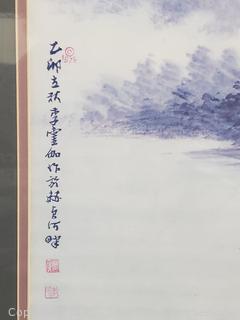 乙卯立秋李靈伽作於赫貞河畔
Cop